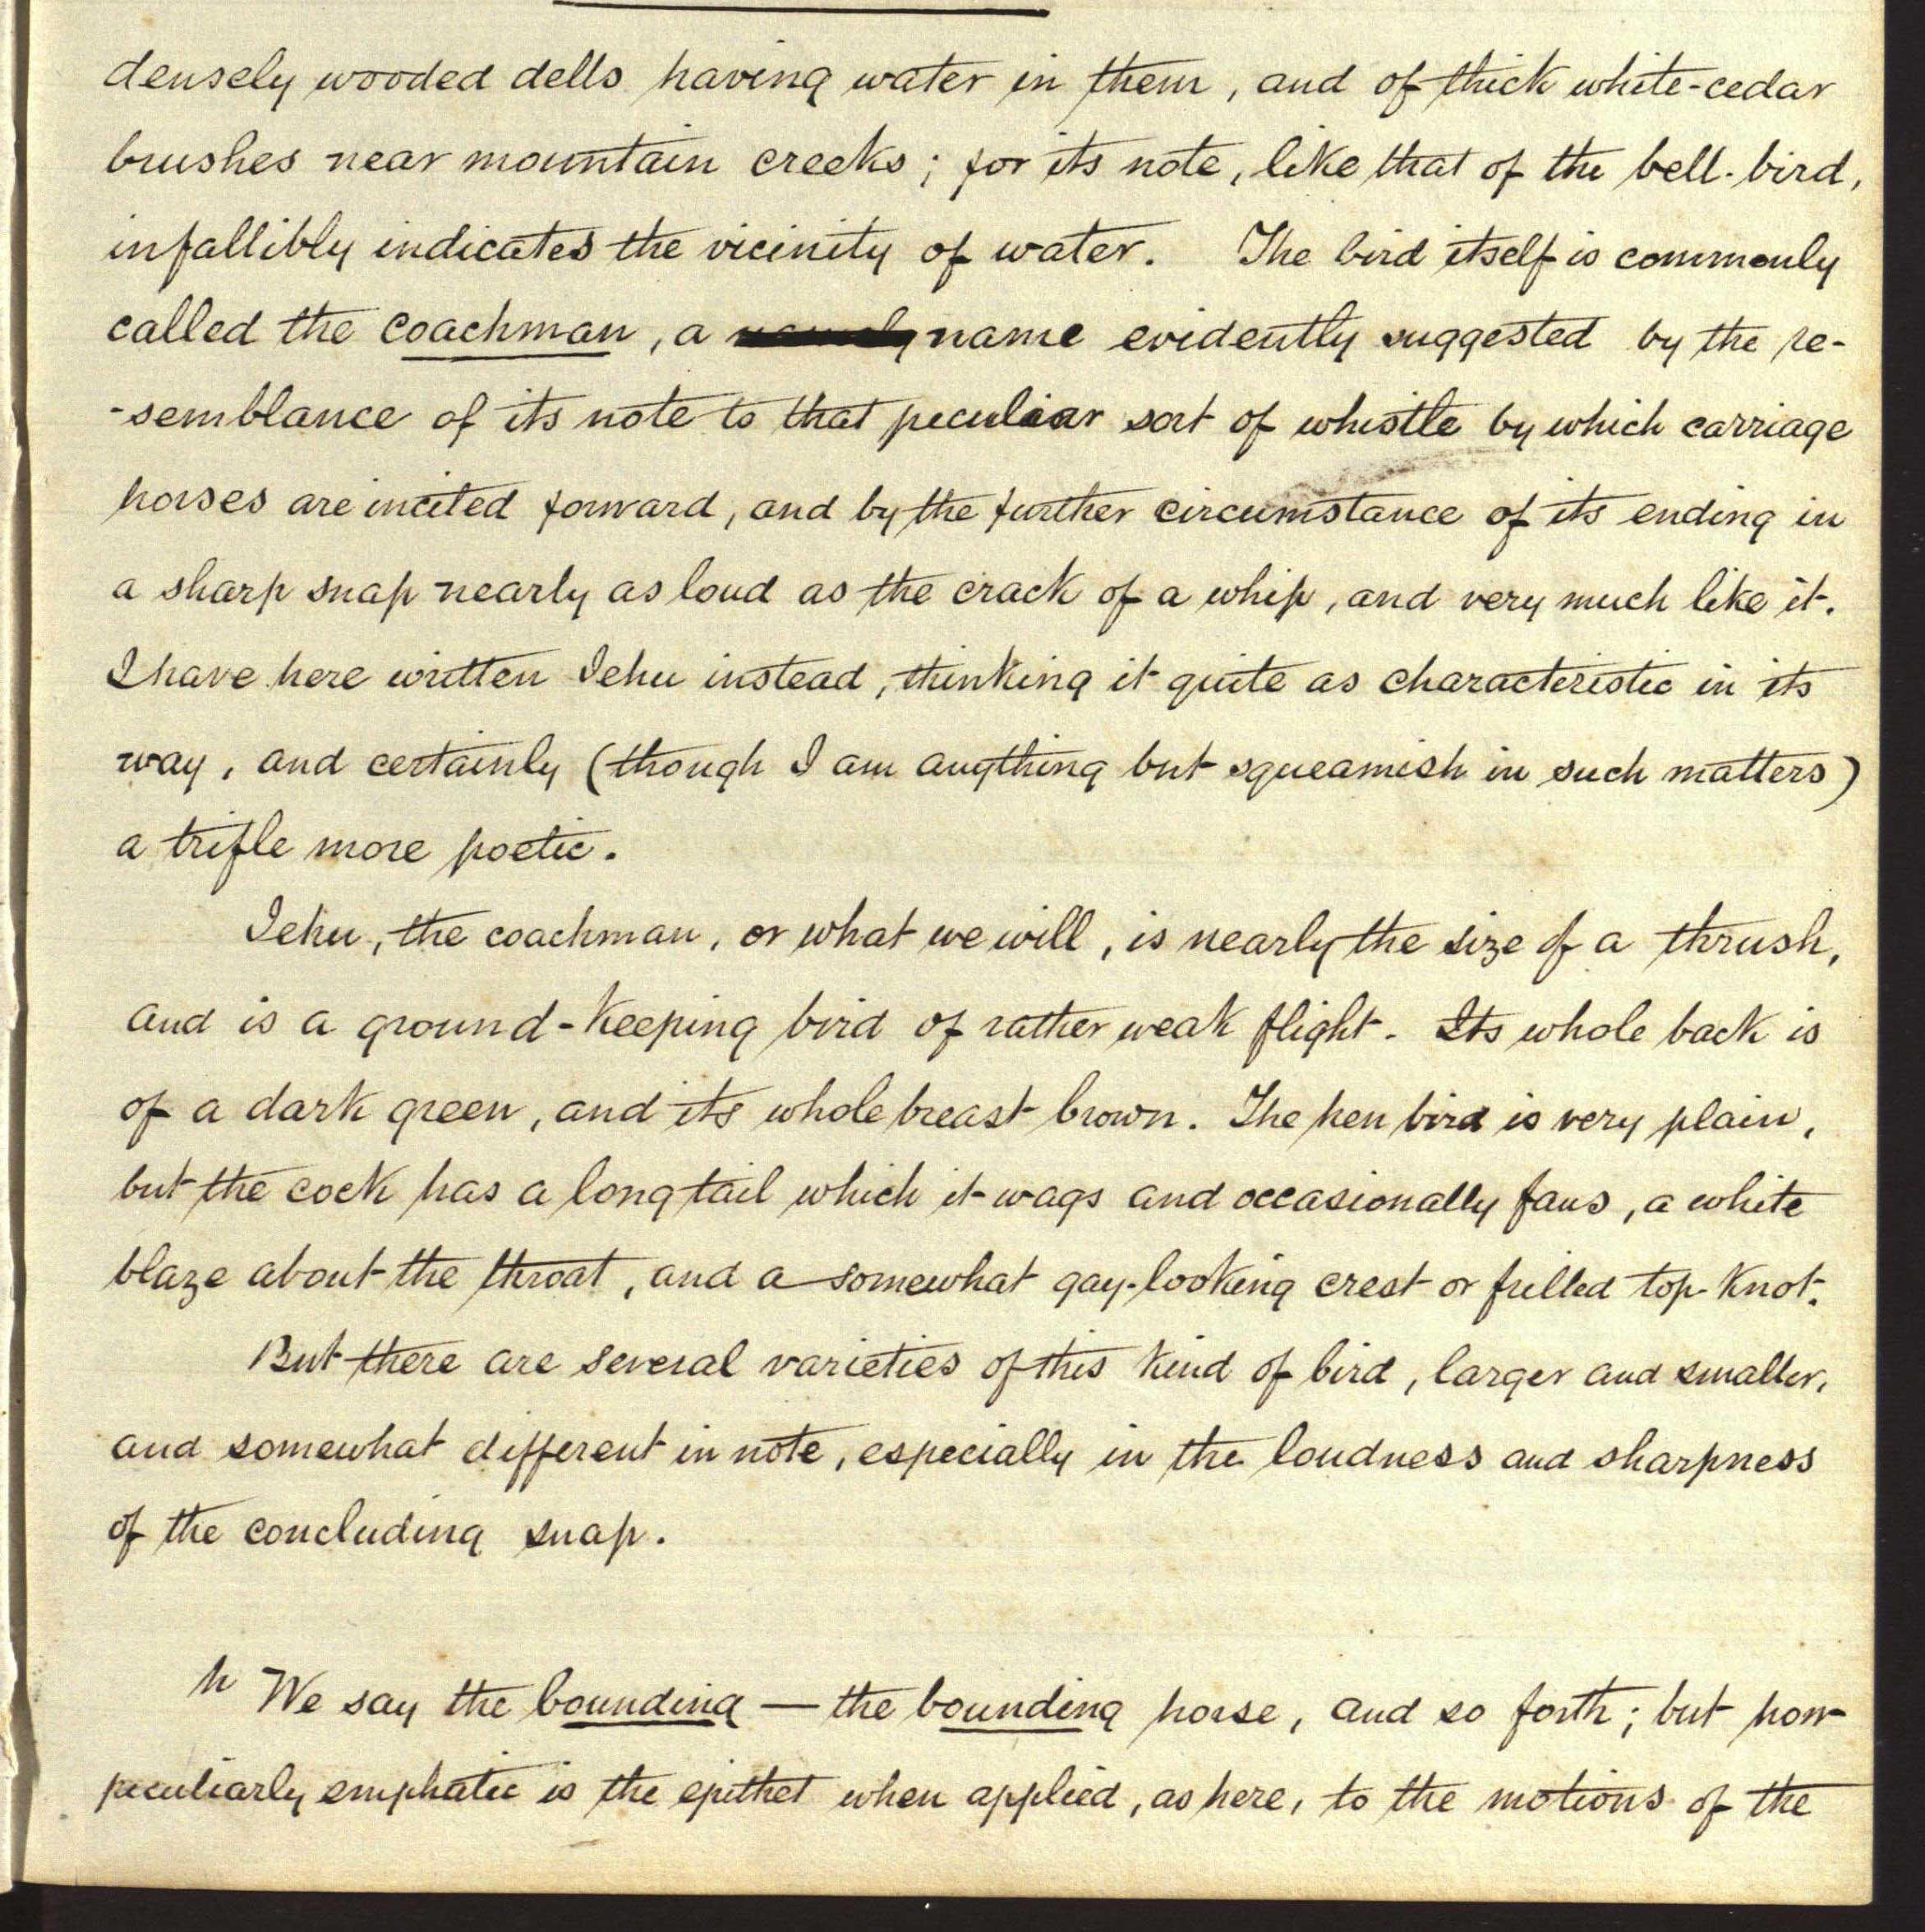 densely wooded dells having water in them, and of thick white-cedar
brushes near mountain creeks; for its note, like that of the bell-bird,
infallibly indicates the vicinity of water. The bird itself is commonly
called the coachman, a name evidently suggested by the re-
-semblance of its note to that peculiar sort of whistle by which carriage
horses are incited forward, and by the further circumstance of its ending in
a sharp snap nearly as loud as the crack of a whip, and very much like it.
I have here written Jehu instead, thinking it quite as characteristic in its
way, and certainly (though I am anything but squeamish in such matters)
a trifle more poetic.
Jehu, the coachman, or what we will, is nearly the size of a thrush,
and is a ground-keeping bird of rather weak flight. Its whole back is
of a dark green, and its whole breast brown. The hen bird is very plain,
but the cock has a long tail which it wags and occasionally fans, a white
blaze about the throat, and a somewhat gay-looking crest or frilled top-knot.
But there are several varieties of this kind of bird, larger and smaller,
and somewhat different in note, especially in the loudness and sharpness
of the concluding snap.
h We say the bounding — the bounding horse, and so forth; but how
peculiarly emphatic is the epithet when applied, as here, to the motions of the